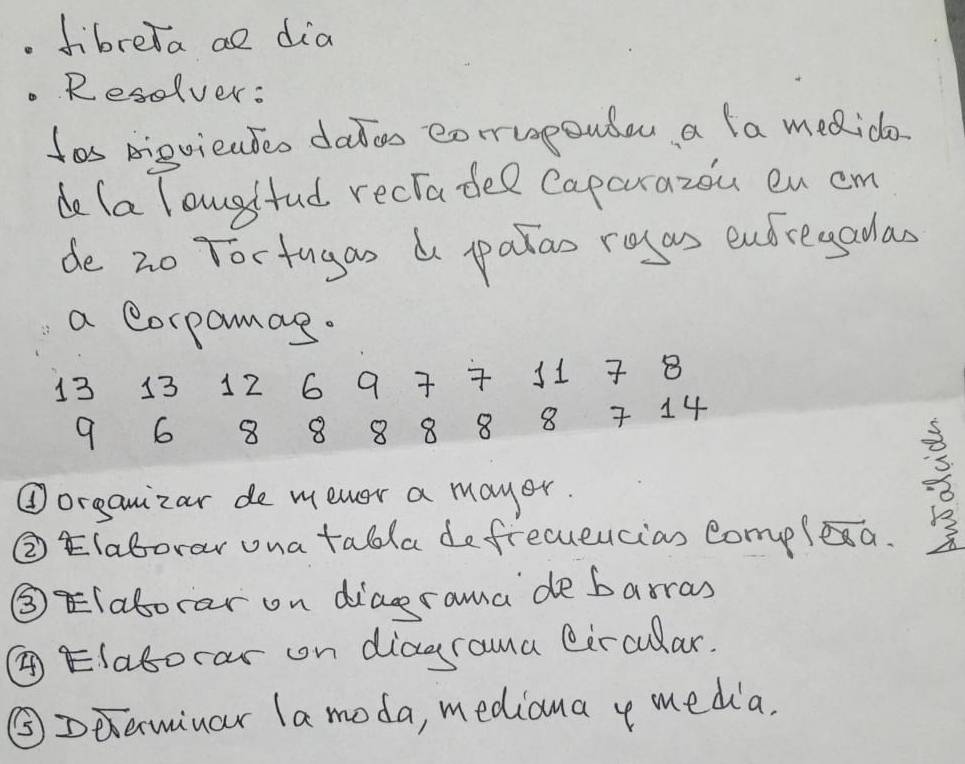 . Libreta al día
. Resolver:
Los siguientes datos corresponden a la medida
de la longitud recta del Caparazón en cm
de 20 Tortugas de patas rojas entregadas
a Corpamag.
13 13 12 6 9 7 7 11 7 8
9 6 8 8 8 8 8 8 7 14
① organizar de menor a mayor.
② Elaborar una tabla de frecuencias completa.
③ Elaborar un diagrama de barras
④ Elaborar un diagrama Circular.
⑤ Determinar la moda, mediana y media.